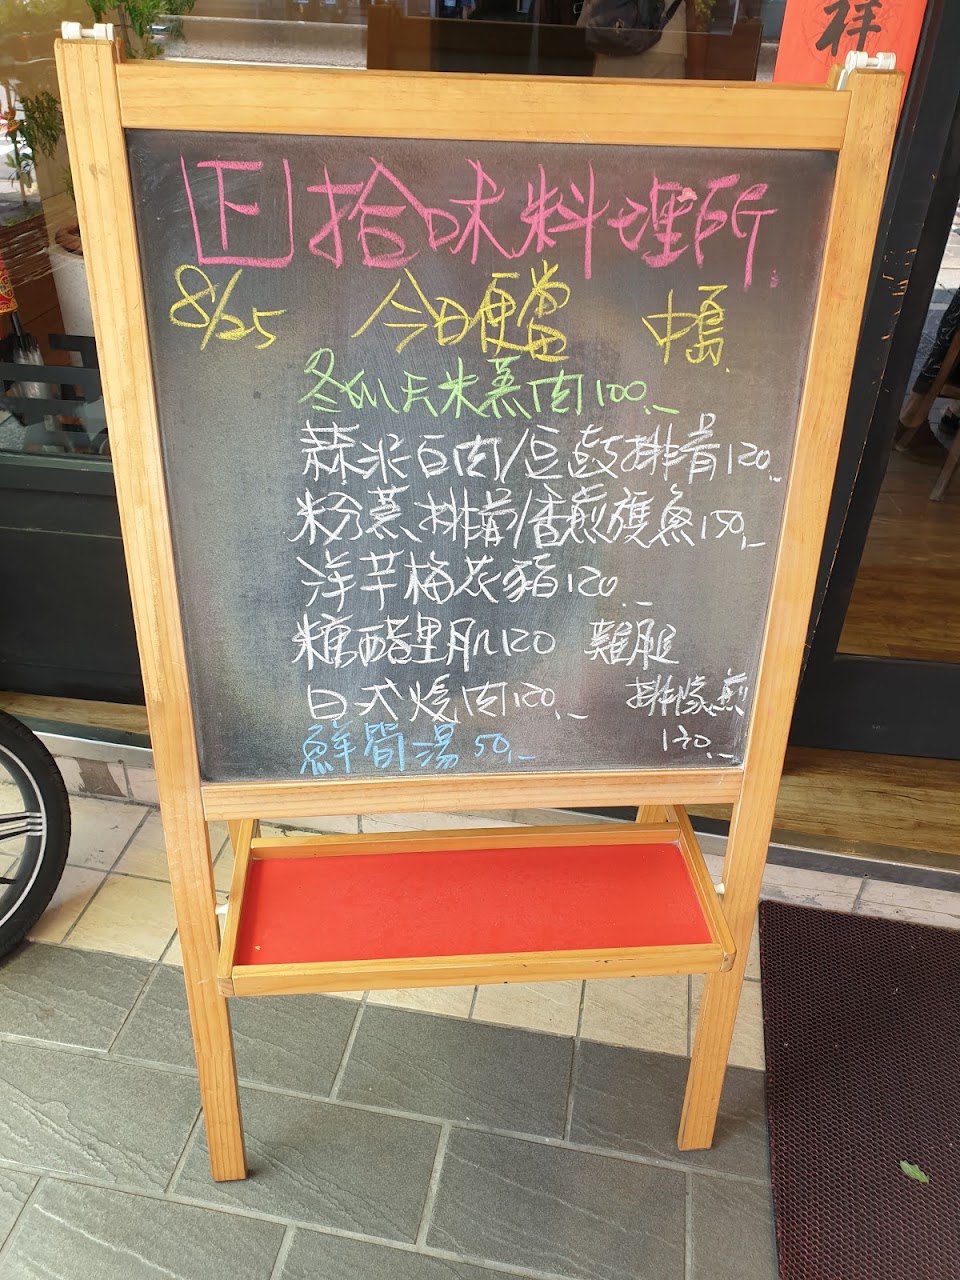 祥
下 拾味料理所
8/25 今日便當 中
冬瓜玉米蒸肉100.-
蒜泥白肉/豆鼓排骨120.-
粉蒸排骨/香煎鱈魚150.-
洋芋梅花豬120.-
糖醋里肌120 雞腿
日式燒肉120.- 排
煎
鮮筍湯 50.- 130.-